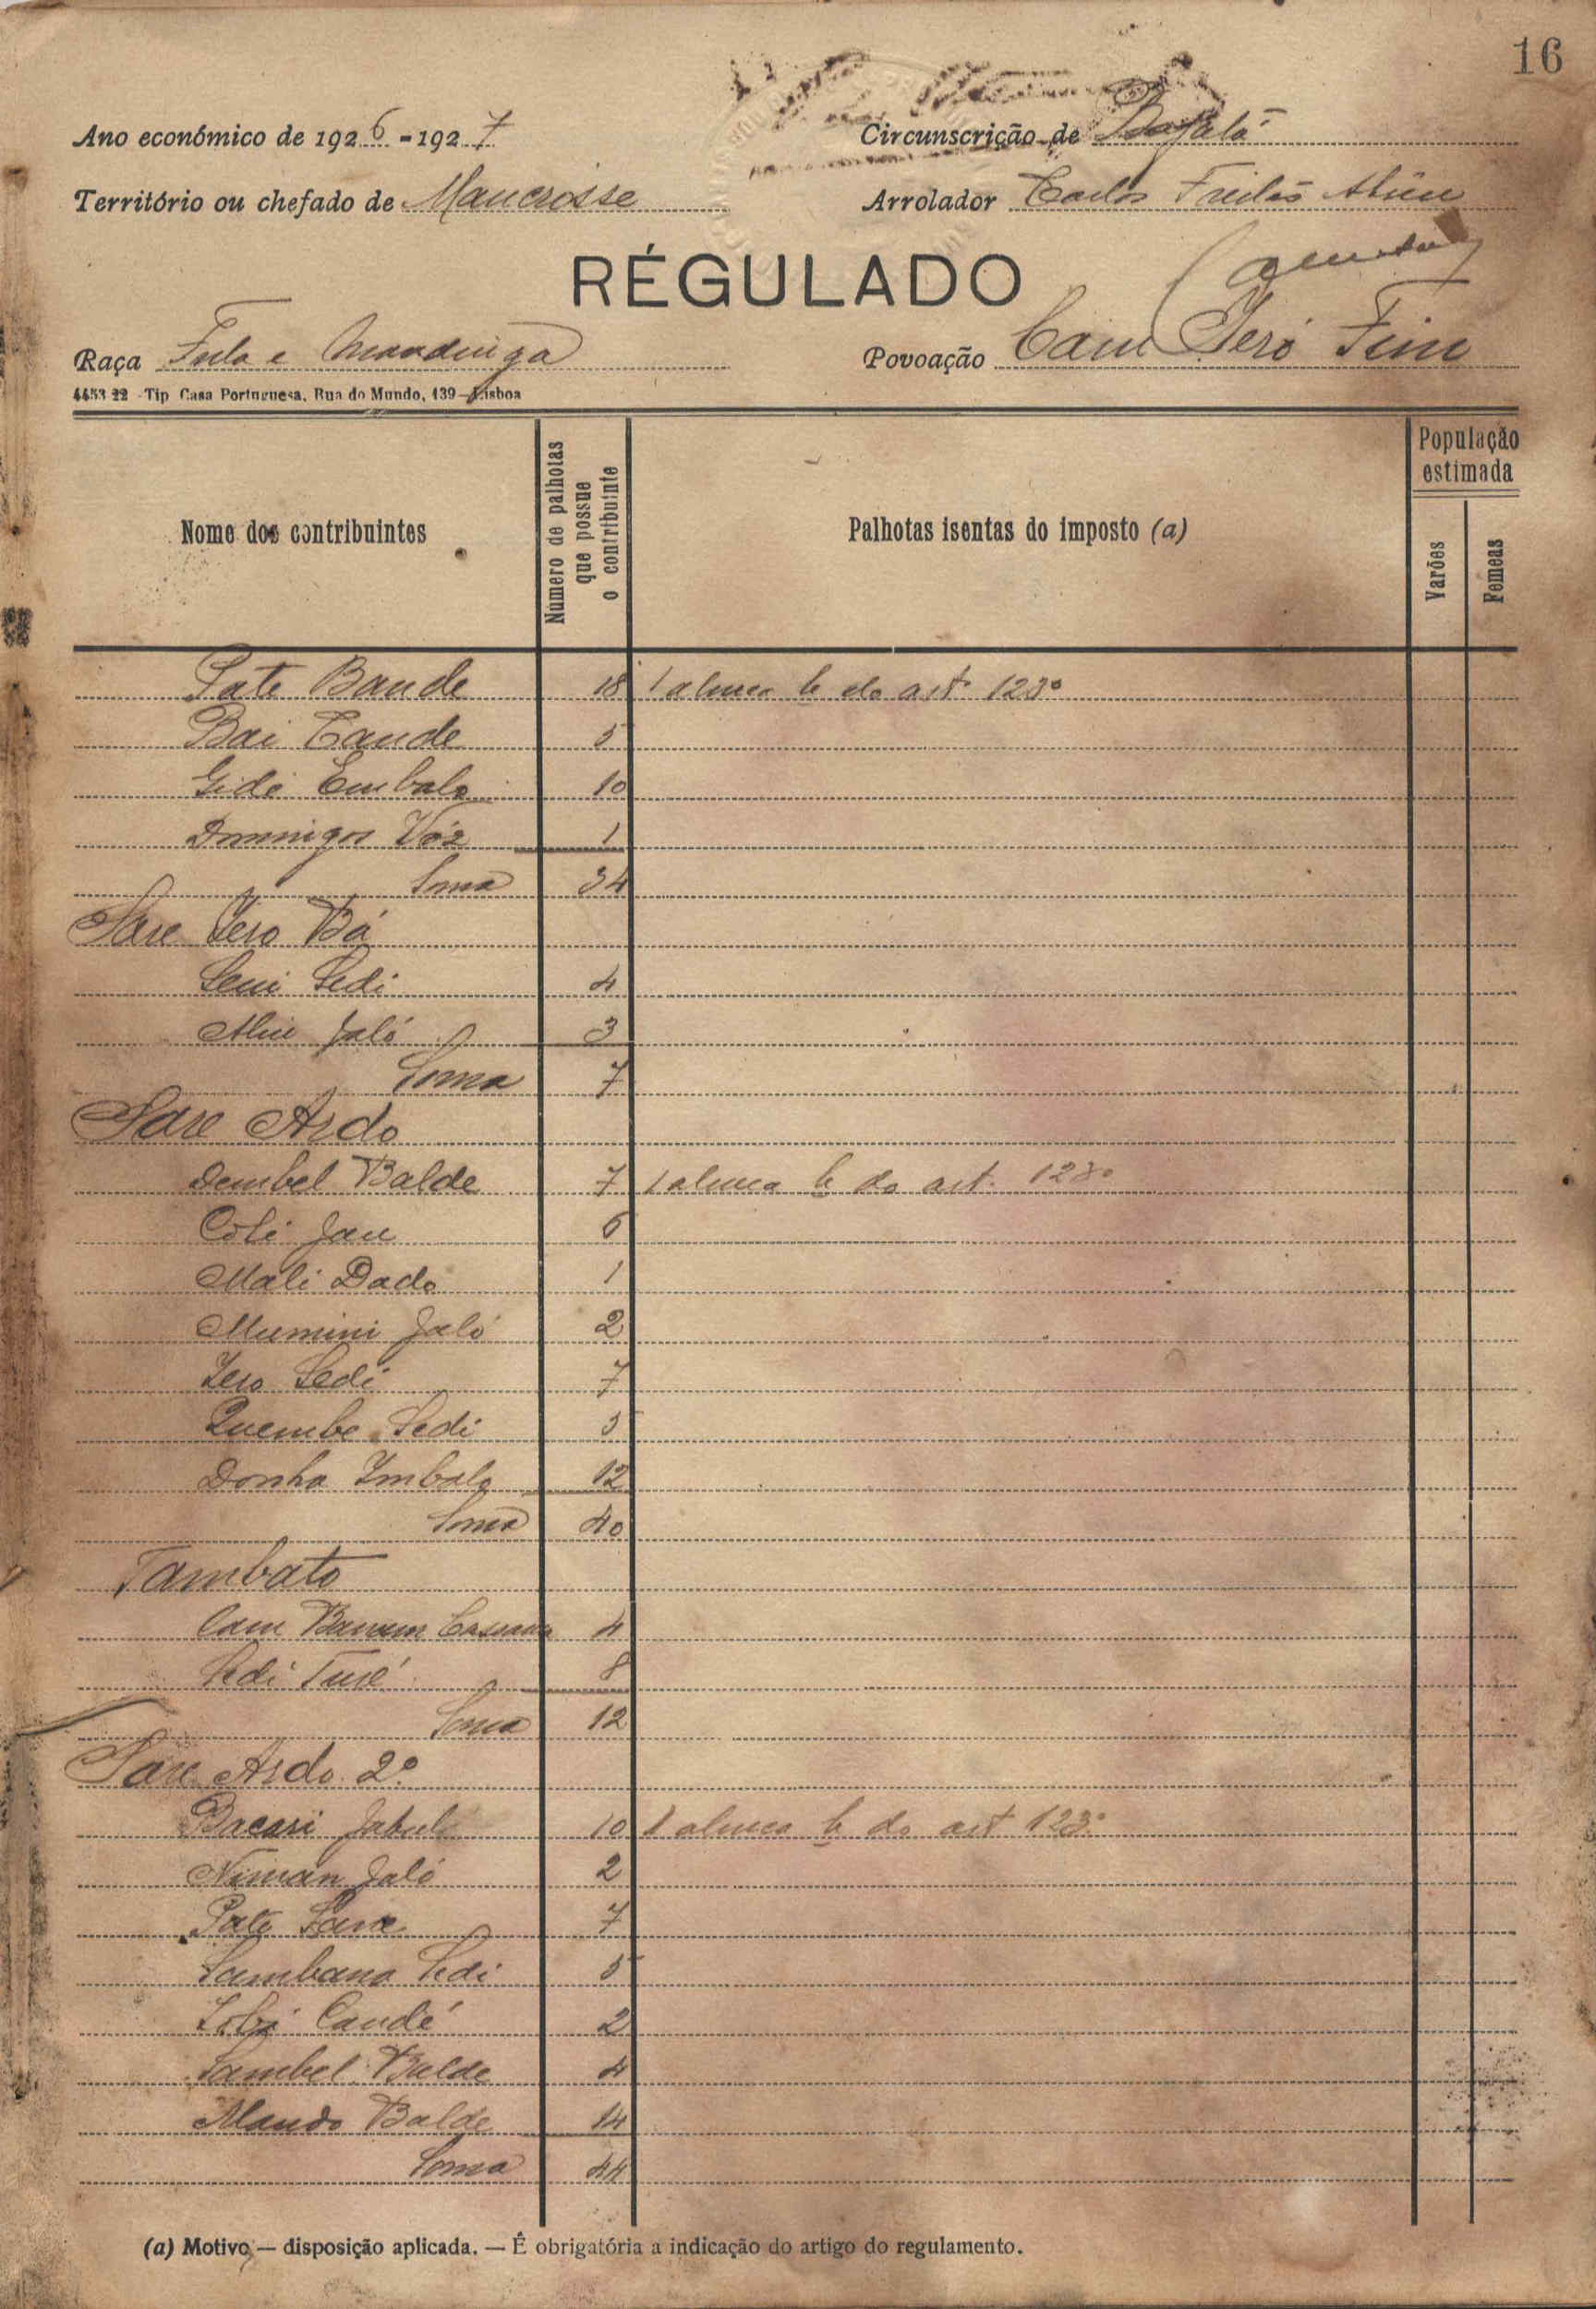 16
Ano económico de 1926-1927 Circunscrição de Bafatá
Território ou chefado de Mancrosse Arrolador Carlos
RÉGULADO
Raça Fula e Mandinga Povoação Cam Jeró Fim
4453 22 - Tip Casa Portuguesa, Rua do Mundo, 139 - Lisboa
Nome dos contribuintes
Número de palhotas que possue o contribuinte
Palhotas isentas do imposto (a)
População estimada
Varões
Femeas
Pate Bande 18 1 alinea b do art. 123º
Bai Cande 5
Gide Embalo 10
Domingos Vaz 1
Soma 34
Sare Jero Bá
Seni Sedi 4
Aliu Jaló 3
Soma 7
Sare Ardo
Dembel Balde 7 1 alinea b do art. 123º
Coli Jau 6
Mali Dado 1
Mumini Jaló 2
Jero Sedi 7
Quembe Sedi 5
Donha Imbalo 12
Soma 40
Tambato
Cam 4
Sedi Turé 8
Soma 12
Sare Ardo 2º
Bacari 10 1 alinea b do art 123º
Niman Jaló 2
Pate Sane 7
Sambana Sedi 5
Candé 2
Sambel Balde 4
Mando Balde 14
Soma 44
(a) Motivo — disposição aplicada. — É obrigatória a indicação do artigo do regulamento.